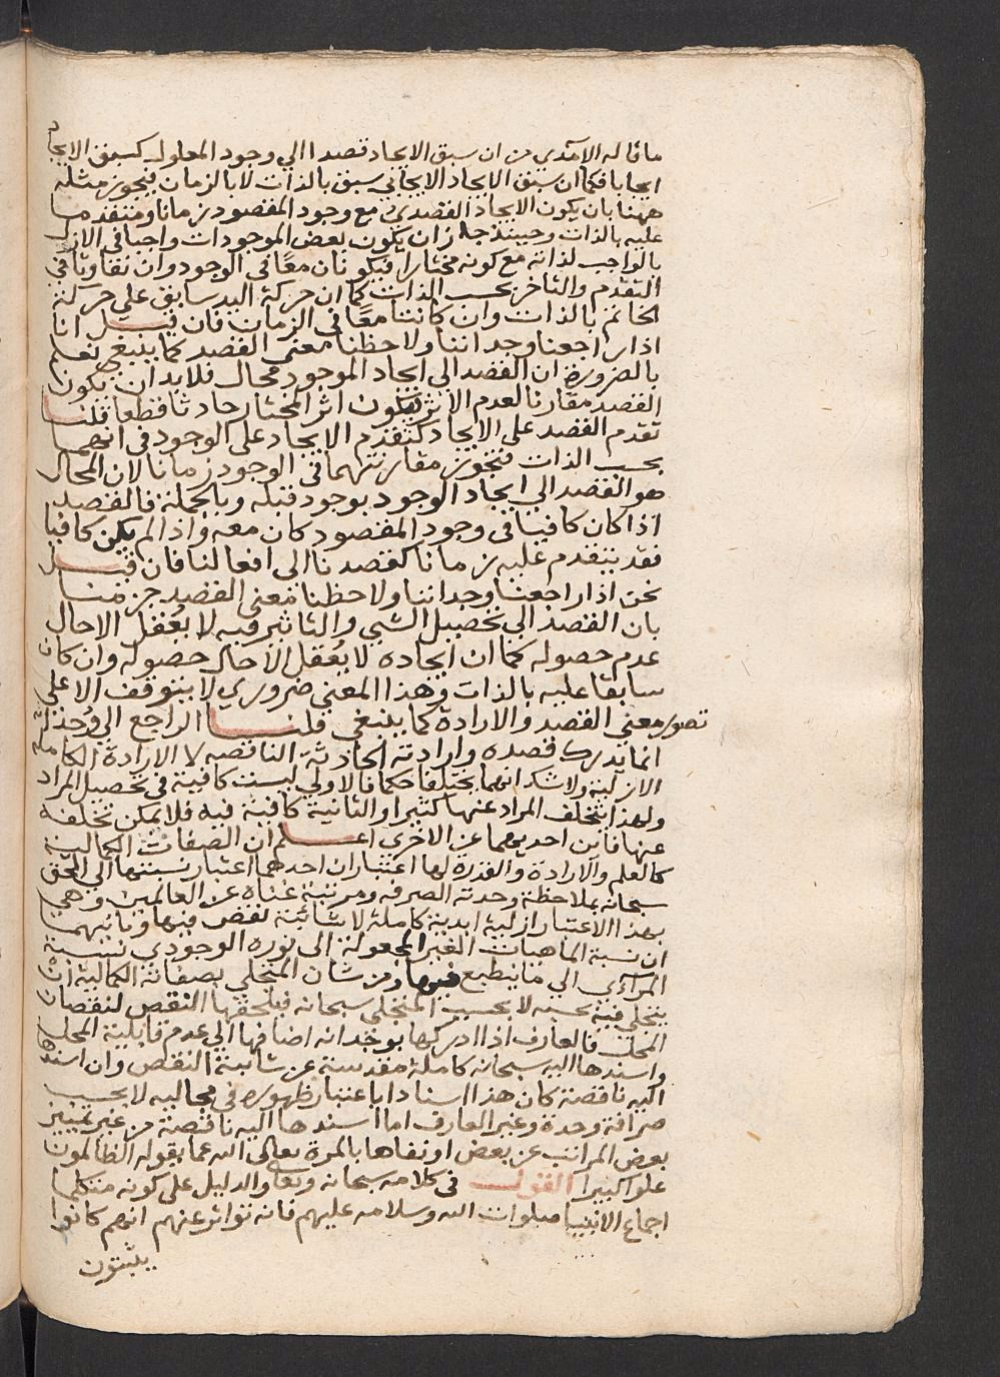 ما قاله الآمدي من ان سبق الايجاد قصدا الي وجود المعلول كسبق الايجاد
ايجابا فكما ان سبق الايجاد الايجابي سبق بالذات لا بالزمان فيجوز مثله
ههنا بان يكون الايجاد القصدي مع وجود المقصود زمانا ومتقدما
عليه بالذات وحينئذ جاز ان يكون بعض الموجودات واجبا في الازل
بالواجب لذاته مع كونه مختارا فيكونان معًا في الوجود وان تفاوتا في
التقدم والتاخر بحسب الذات كما ان حركة اليد سابق علي حركة
الخاتم بالذات وان كانتا معًا في الزمان فان قيل انا
اذا راجعنا وجداننا ولاحظنا معني القصد كما ينبغي نعلم
بالضرورة ان القصد الي ايجاد الموجود محال فلا بد ان يكون
القصد مقارنا لعدم الاثر فيكون اثر المختار حادثا قطعا قلنا
تقدم القصد على الايجاد كتقدم الايجاد على الوجود في انهما
بحسب الذات فيجوز مقارنتهما في الوجود زمانا لان المحال
هو القصد الي ايجاد الوجود بوجود قبله وبالجملة فالقصد
اذا كان كافيا في وجود المقصود كان معه واذا لم يكن كافيا
فقد يتقدم عليه زمانا كقصدنا الى افعالنا فان قيل
نحن اذا راجعنا وجداننا ولاحظنا معنى القصد جزمنا
بان القصد الي تحصيل الشي والتاثير فيه لا يعقل الا حال
عدم حصوله كما ان ايجاده لا يعقل الا حال حصوله وان كان
سابقا عليه بالذات وهذا المعني ضروري لا يتوقف الا علي
تصور معني القصد والارادة كما ينبغي قلنا الراجع الي وجدانه
انما يدرك قصده وارادته الحادثة الناقصه لا الارادة الكاملة
الازلية ولا شك انهما يختلفا حكما فالاولي ليست كافية في تحصيل المراد
ولهذا يتخلف المراد عنها كثيرا والثانية كافية فيه فلا يمكن تخلفه
عنها فاين احديهما عن الاخرى اعلم ان الصفات الكمالية
كالعلم والارادة والقدرة لها اعتباران احدهما اعتبار نسبتها الي الحق
سبحانه بملاحظة وحدته الصرفه ومرتبة غناه عن العالمين وهي
بهذا الاعتبار ازلية ابدية كاملة لا شائبة نقص فيها وثانيهما
ان نسبة الماهيات الغير المجعولة الى نوره الوجودي نسبة
المرآي الي ما ينطبع فيها ومن شان المتجلي بصفاته الكمالية ان
يتجلي فيه بحسبه لا بحسب المتجلي سبحانه فيلحقها النقص لنقصان
المحل فالعارف اذا ادركها بوجدانه اضافها الي عدم قابلية المحل
واسندها اليه سبحانه كاملة مقدسة عن شائبة النقص وان اسندها
اليه ناقصة كان هذا اسنادا باعتبار ظهوره في مجاليه لا بحسب
صرافة وحدة وغير العارف اما اسندها اليه ناقصة من غير تمييز
بعض المراتب عن بعض او نفاها بالمرة تعالى الله عما يقوله الظالمون
علوا كبيرا القول في كلامه سبحانه وتعالى والدليل على كونه متكلما
اجماع الانبيا صلوات الله وسلامه عليهم فانه تواتر عنهم انهم كانوا
يثبتون